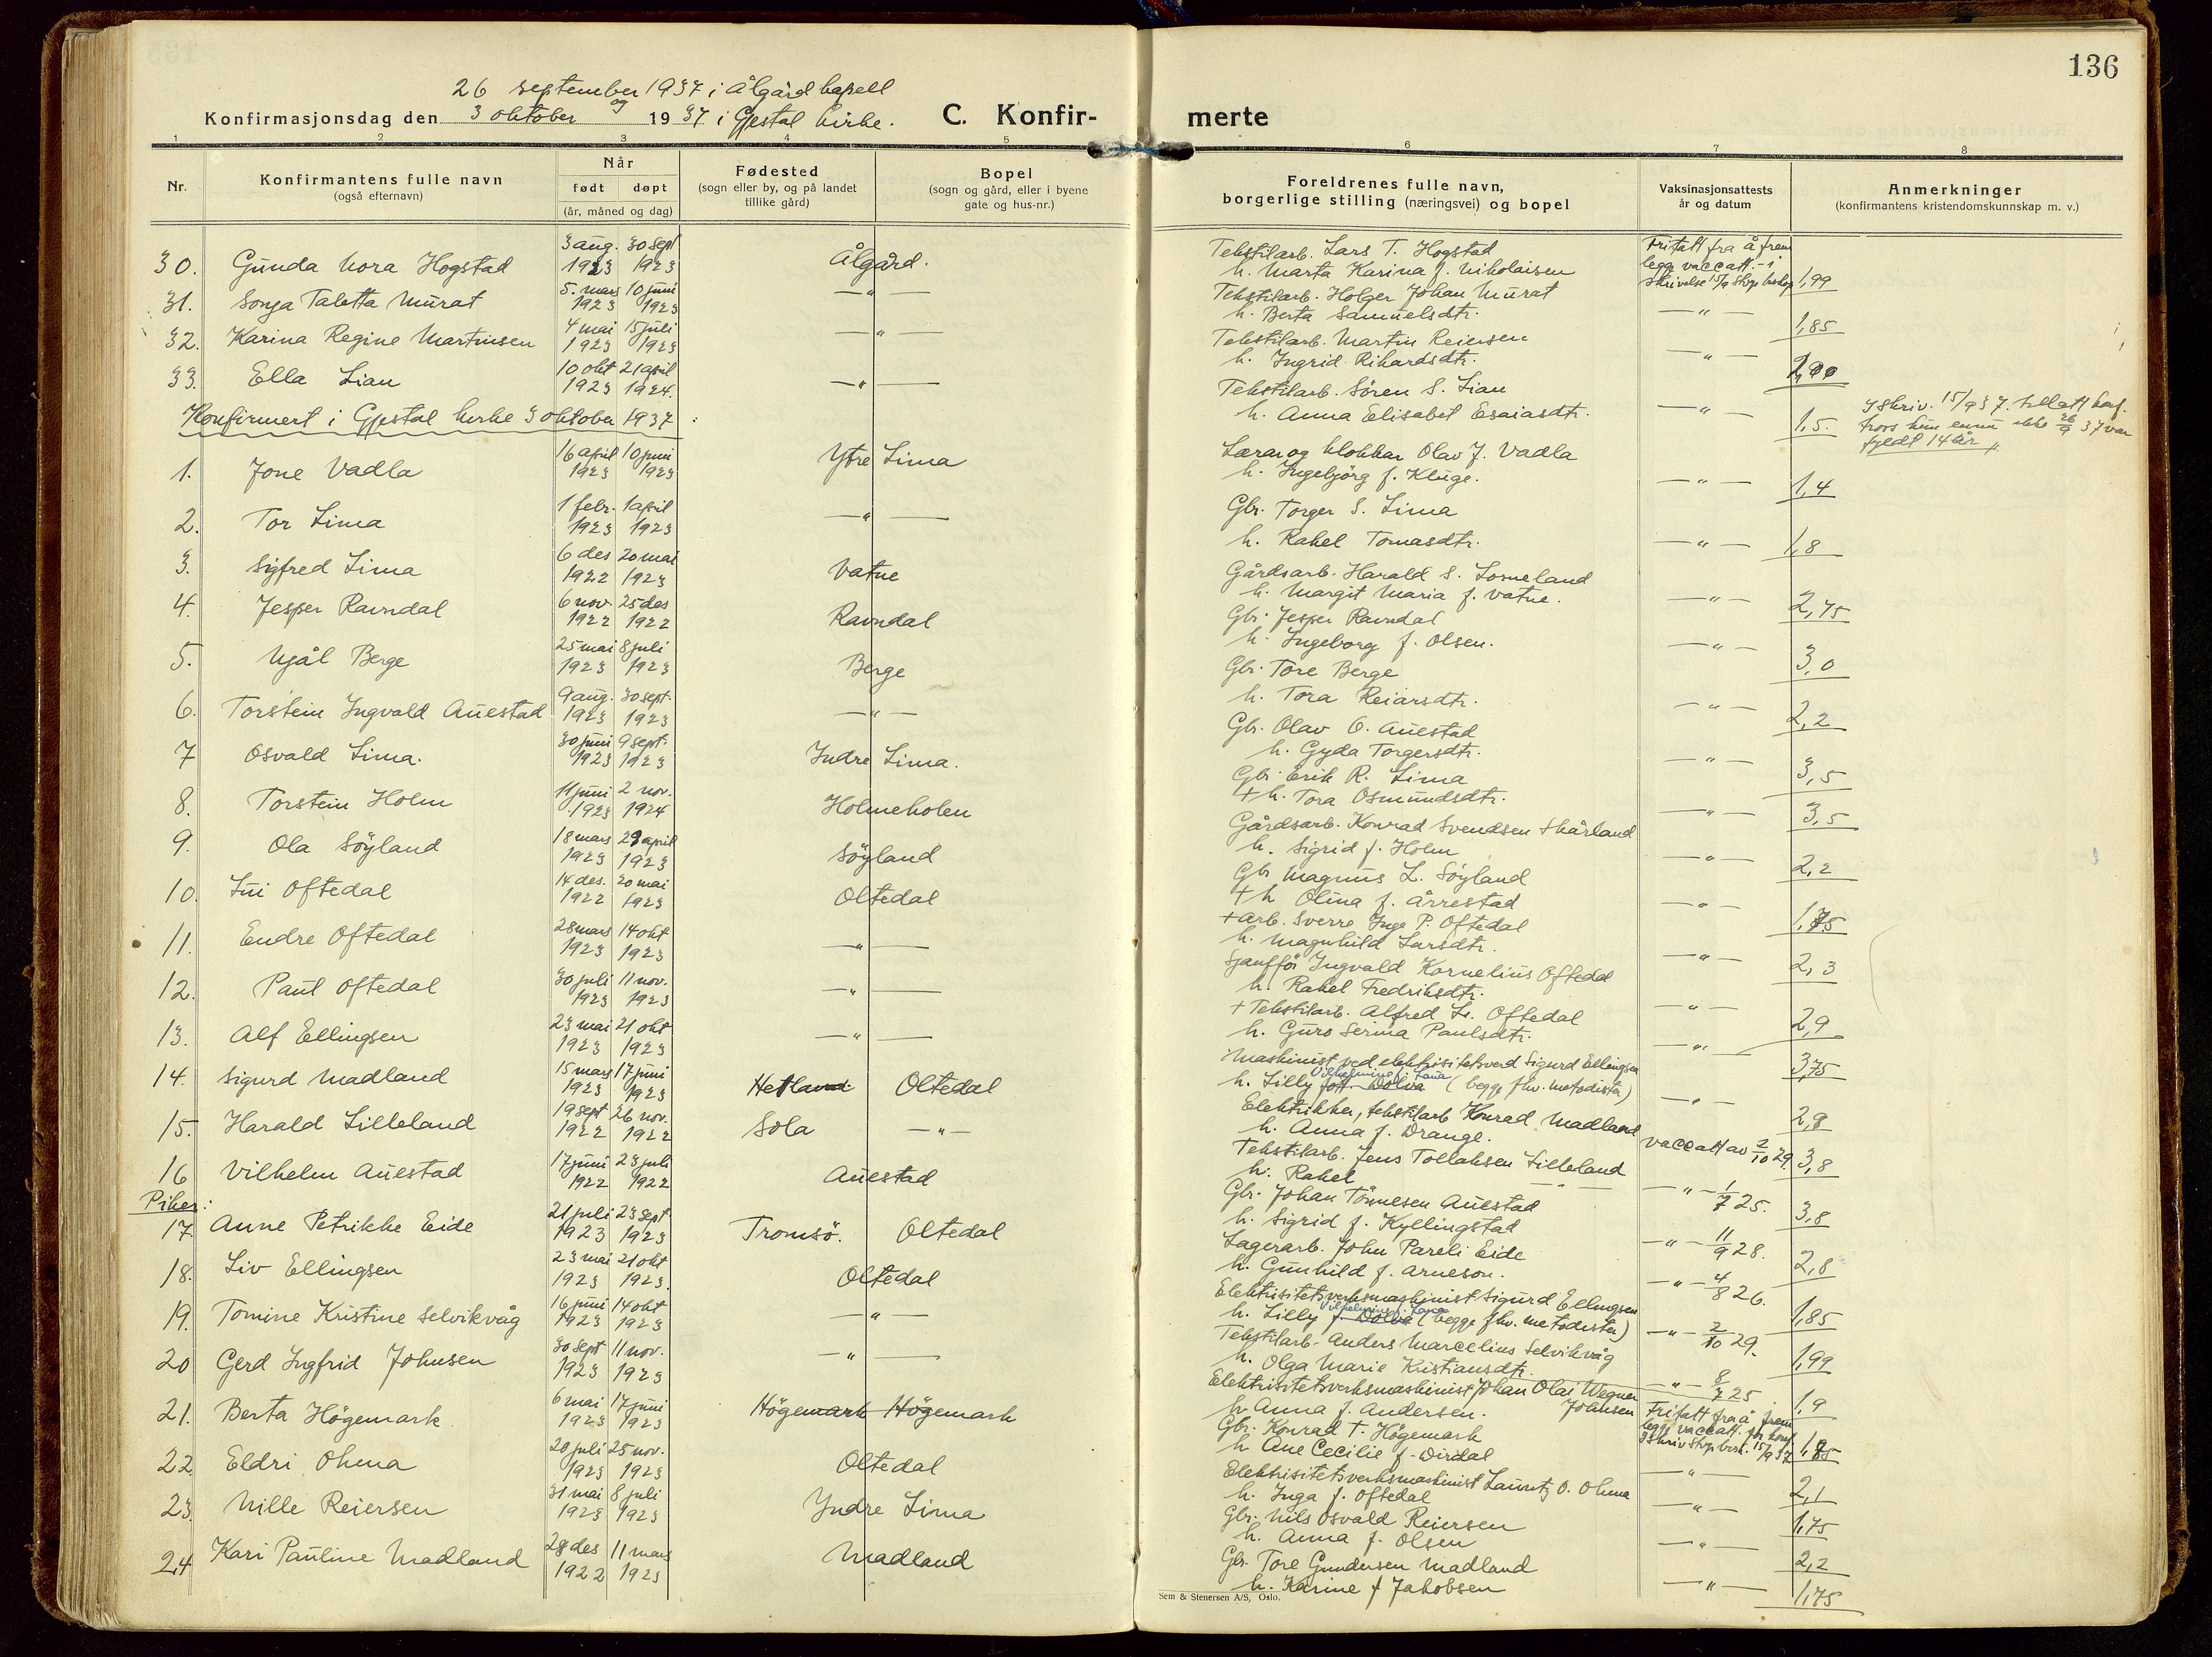 136
26 september 1937 i Ålgård kapell
og
Konfirmasjonsdag den 3 oktober 1937 i Gjestal kirke.
C. Konfir- merte
1 2 3 4 5 6 7 8
Nr.
Konfirmantens fulle navn
(også efternavn)
Når
født døpt
(år, måned og dag)
Fødested
(sogn eller by, og på landet
tillike gård)
Bopel
(sogn og gård, eller i byene
gate og hus-nr.)
Foreldrenes fulle navn,
borgerlige stilling (næringsvei) og bopel
Vaksinasjonsattests
år og datum
Anmerkninger
(konfirmantens kristendomskunnskap m. v.)
30. Gunda Nora Hogstad 3 aug. 1923 30 sept 1923 Ålgård. Tekstilarb. Lars T. Hogstad
h. Marta Karina f. Nikolaisen Fritatt fra å frem
legge vaccatt. - i
skrivelse 15/9 Stvgr biskop 1,99
31. Sonja Taletta Murat 5. mars 1923 10 juni 1923 — " — Tekstilarb. Holger Johan Murat
h. Berta Samuelsdtr. — " — 1,85
32. Karina Regine Martinsen 4 mai 1923 15 juli 1923 — " — Tekstilarb. Martin Reiersen
h. Ingrid Rikardsdtr. — " — 2,00
33. Ella Lian 10 okt 1923 21 april 1924. — " — Tekstilarb. Sören S. Lian
h. Anna Elisabet Esaiasdtr. — " — 1,5.
I skriv. 15/9 37. tillatt konf.
tross hun ennu ikke 26/9 37 var
fyldt 14 år "
Konfirmert i Gjestal kirke 3 oktober 1937:
1. Jone Vadla 16 april 1923 10 juni 1923 Ytre Lima Lærer og klokker Olav J. Vadla
h. Ingebjörg f. Kluge. — " — 1,4
2. Tor Lima 1 febr. 1923 1 april 1923 — " — Gbr. Torger S. Lima
h. Rakel Tomasdtr. — " — 1,8
3. Sigfred Lima 6 des 1922 20 mai 1923 Vatne Gårdsarb. Harald S. Losneland
h. Margit Maria f. Vatne. — " — 2,75
4. Jesper Ravndal 6 nov 1922 25 des 1922 Ravndal Gbr. Jesper Ravndal
h. Ingeborg f. Olsen. — " — 3,0
5. Njål Berge 25 mai 1923 8 juli 1923 Berge Gbr. Tore Berge
h. Tora Reiarsdtr. — " — 2,2
6. Torstein Ingvald Auestad 9 aug. 1923 30 sept. 1923 — " — Gbr. Olav O. Auestad
h. Gyda Torgersdtr. — " — 3,5
7 Osvald Lima. 30 juni 1923 9 sept. 1923 Indre Lima. Gbr. Erik R. Lima
+ h. Tora Osmundsdtr. — " — 3,5
8. Torstein Holm 11 juni 1923 2 nov. 1924 Holmeholen Gårdsarb. Konrad Svendsen Skårland
h. Sigrid f. Holm — " — 2,2
9. Ola Söyland 18 mars 1923 29 april 1923 Söyland Gbr Magnus L. Söyland
+ h Olina f. Årrestad — " — 1,75
10. Lui Oftedal 14 des. 1922 20 mai 1923 Oltedal + arb. Sverre Inge P. Oftedal
h. Magnhild Larsdtr. — " — 2,3
11. Endre Oftedal 28 mars 1923 14 okt 1923 — " — Sjaufför Ingvald Kornelius Oftedal
h. Rakel Fredriksdtr. — " — 2,9
12. Paul Oftedal 30 juli 1923 11 nov. 1923 — " — + Tekstilarb. Alfred L. Oftedal
h. Guro Serina Paulsdtr. — " — 3,75
13. Alf Ellingsen 23 mai 1923 21 okt 1923 — " — Maskinist ved elektrisitetsverd Sigurd Ellingsen
Vilhelmine f. Lana
h. Lilly født Dolva (begge fhv. metodister) — " — 2,8
14. Sigurd Madland 15 mars 1923 17 juni 1923 Hetland Oltedal Elektriker, tekstilarb Konrad Madland
h. Anna f. Drange. vaccatt av 2/10 29. 3,8
15. Harald Lilleland 19 sept 1922 26 nov. 1922 Sola — " — Tekstilarb. Jens Tollaksen Lilleland
h. Rakel — " — — " — 1/7 25. 3,8
16 Vilhelm Auestad 17 juni 1922 23 juli 1922 Auestad Gbr. Johan Tönnesen Auestad
h. Sigrid f. Kyllingstad — " — 11/9 28. 2,8
Piker:
17. Anne Petrikke Eide 21 juli 1923 23 sept. 1923 Tromsö. Oltedal Lagerarb. John Pareli Eide
h. Gunhild f. Arneson. — " — 4/8 26. 1,85
18. Liv Ellingsen 23 mai 1923 21 okt 1923. Oltedal Elektrisitetsverksmaskinist Sigurd Ellingsen
Vilhelmine f. Lana
h. Lilly f. Dolva (begge fhv. metodister) — " — 2/10 29. 1,99
19. Tomine Kristine Selvikvåg 16 juni 1923 14 okt 1923 — " — Tekstilarb. Anders Marcelius Selvikvåg
h. Olga Marie Kristiansdtr. — " — 8/7 25 1,9
20 Gerd Ingfrid Johnsen 30 sept 1923 11 nov. 1923 — " — Elektrisitetsverksmaskinist Johan Olai Wegner
Johnsen
h. Anna f. Andersen. Fritatt fra å frem
legge vaccatt. for konf.
I skriv Stvgr bisk. 15/9 37 1,85
21. Berta Högemark 6 mai 1923 17 juni 1923 Högemark Högemark Gbr. Konrad T. Högemark
h Ane Cecilie f. Dirdal — " — 2,1
22 Eldri Ohma 20 juli 1923 25 nov. 1923 Oltedal Elektrisitetsverksmaskinist Lauritz O. Ohma
h. Inga f. Oftedal — " — 1,75
23. Nille Reiersen 31 mai 1923 8 juli 1923 Indre Lima Gbr. Nils Osvald Reiersen
h. Anna f. Olsen — " — 2,2
24 Kari Pauline Madland 28 des 1922 11 mars 1923 Madland Gbr. Tore Gundersen Madland
h. Karine f Jakobsen — " — 1,75
Sem & Stenersen A/S, Oslo.